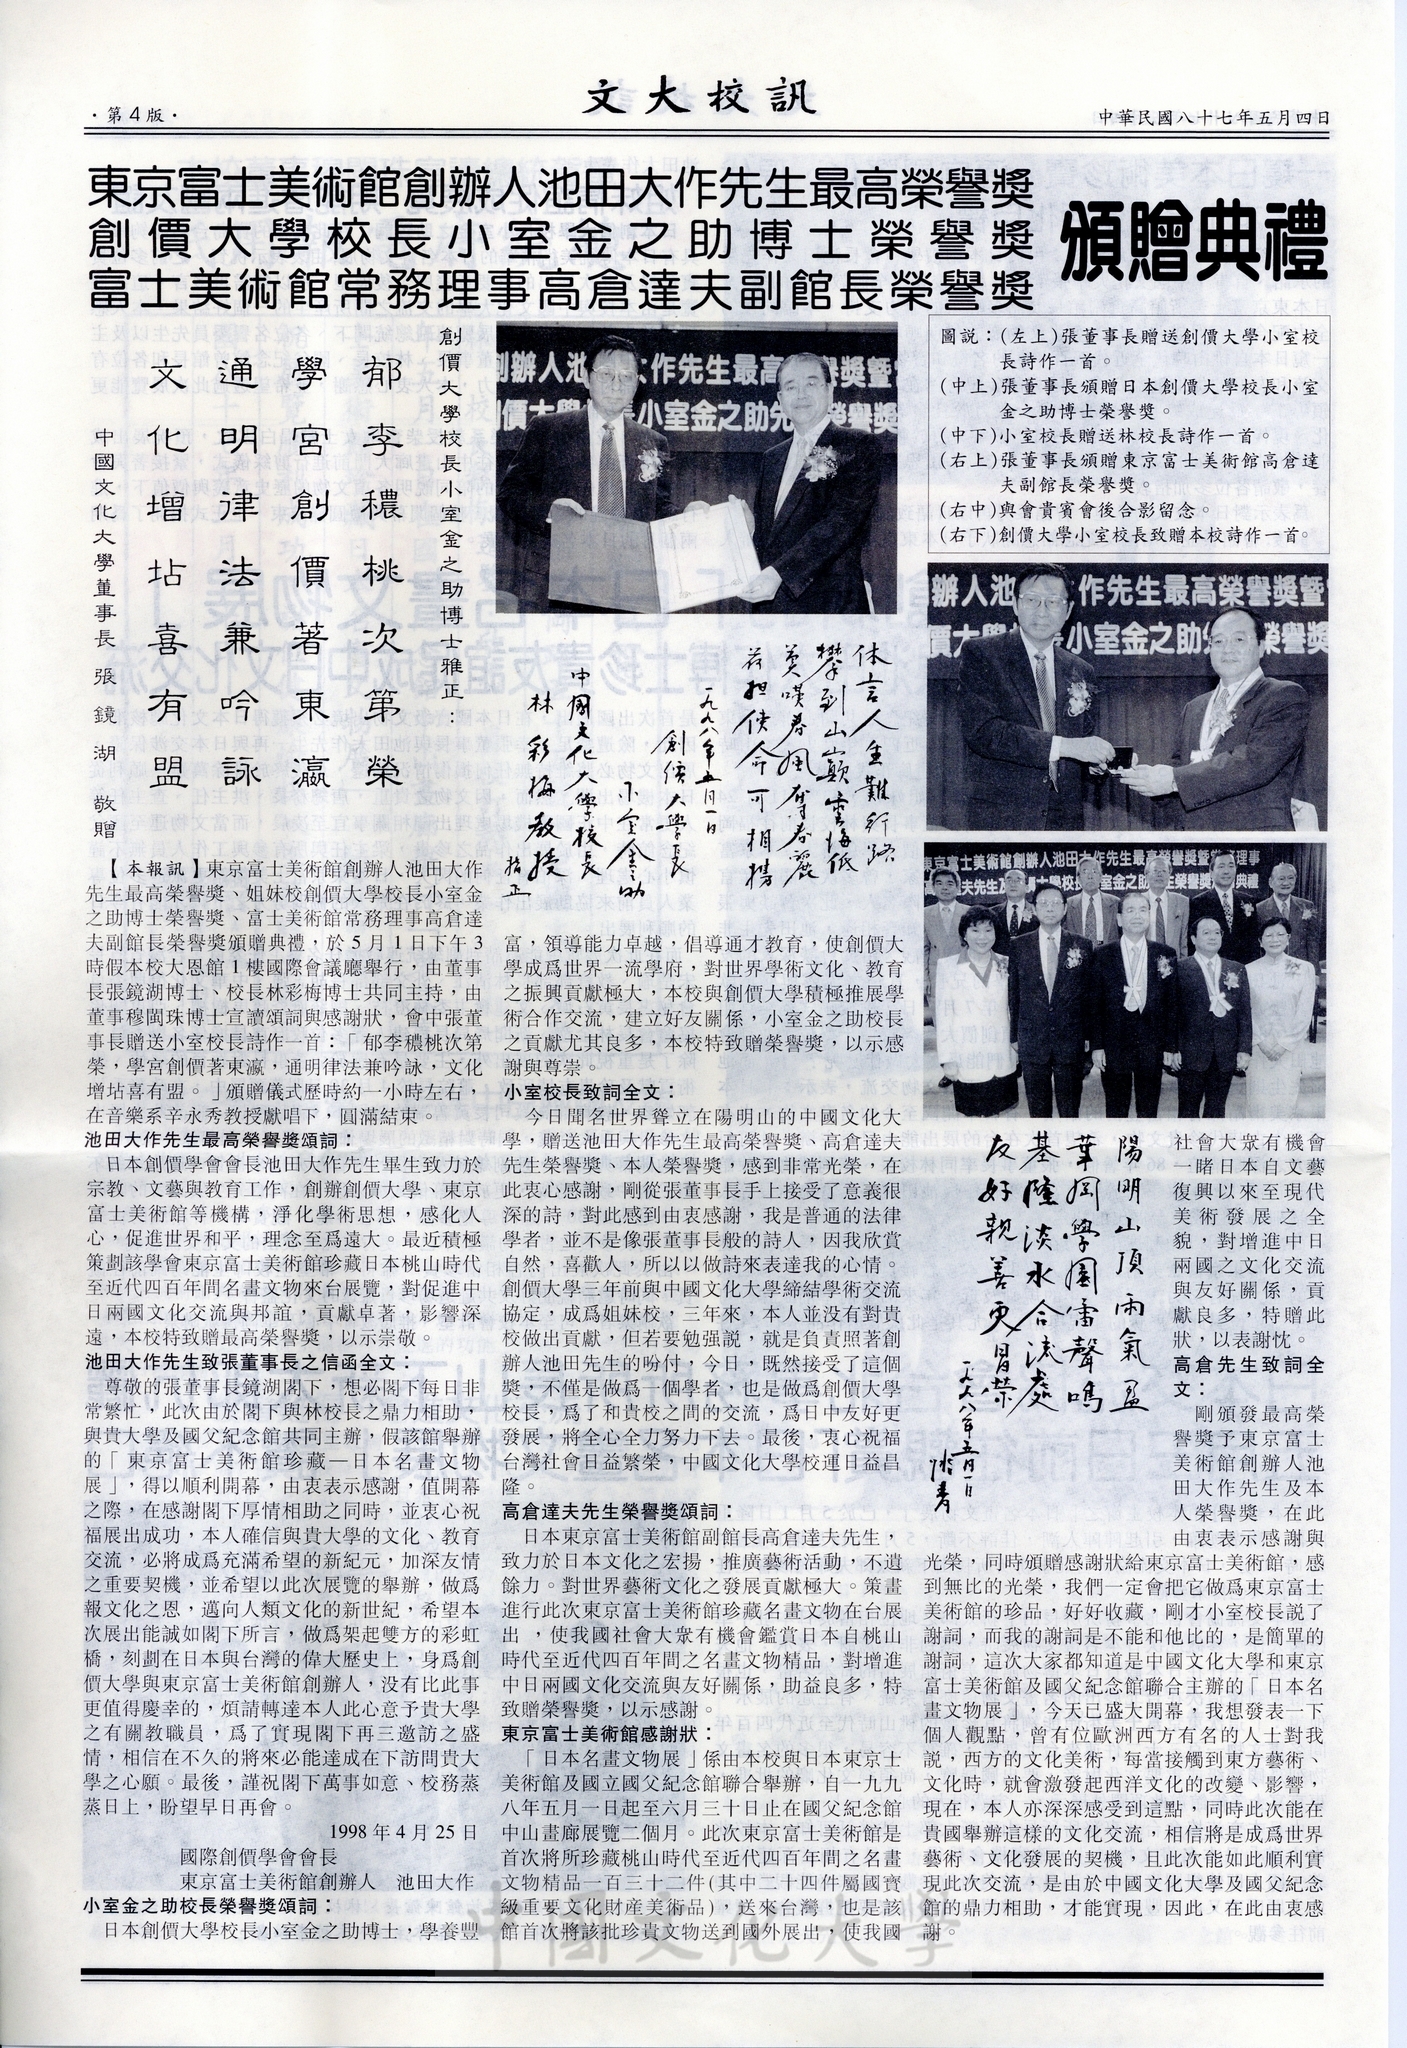 ·第4版·
文大校訊
中華民國八十七年五月四日
東京富士美術館創辦人池田大作先生最高榮譽獎
創價大學校長小室金之助博士榮譽獎
富士美術館常務理事高倉達夫副館長榮譽獎
頒贈典禮
創價大學校長小室金之助博士雅正：
郁李穠桃次第榮
學宮創價著東瀛
通明律法兼吟詠
文化增坫喜有盟
中國文化大學董事長 張鏡湖 敬贈
圖說：(左上)張董事長贈送創價大學小室校
長詩作一首。
(中上)張董事長頒贈日本創價大學校長小室
金之助博士榮譽獎。
(中下)小室校長贈送林校長詩作一首。
(右上)張董事長頒贈東京富士美術館高倉達
夫副館長榮譽獎。
(右中)與會貴賓會後合影留念。
(右下)創價大學小室校長致贈本校詩作一首。
休言人生難行路
攀到山巔雲海低
莫嘆春風奪春麗
荷担使命可相攜
一九九八年五月一日
創價大學長
小室金之助
中國文化大學校長
林彩梅教授 指正
【本報訊】東京富士美術館創辦人池田大作
先生最高榮譽獎、姐妹校創價大學校長小室金
之助博士榮譽獎、富士美術館常務理事高倉達
夫副館長榮譽獎頒贈典禮，於5月1日下午3
時假本校大恩館1樓國際會議廳舉行，由董事
長張鏡湖博士、校長林彩梅博士共同主持，由
董事穆閩珠博士宣讀頌詞與感謝狀，會中張董
事長贈送小室校長詩作一首：「郁李穠桃次第
榮，學宮創價著東瀛，通明律法兼吟詠，文化
增坫喜有盟。」頒贈儀式歷時約一小時左右，
在音樂系辛永秀教授獻唱下，圓滿結束。
池田大作先生最高榮譽獎頌詞：
日本創價學會會長池田大作先生畢生致力於
宗教、文藝與教育工作，創辦創價大學、東京
富士美術館等機構，淨化學術思想，感化人
心，促進世界和平，理念至爲遠大。最近積極
策劃該學會東京富士美術館珍藏日本桃山時代
至近代四百年間名畫文物來台展覽，對促進中
日兩國文化交流與邦誼，貢獻卓著，影響深
遠，本校特致贈最高榮譽獎，以示崇敬。
池田大作先生致張董事長之信函全文：
尊敬的張董事長鏡湖閣下，想必閣下每日非
常繁忙，此次由於閣下與林校長之鼎力相助，
與貴大學及國父紀念館共同主辦，假該館舉辦
的「東京富士美術館珍藏—日本名畫文物
展」，得以順利開幕，由衷表示感謝，值開幕
之際，在感謝閣下厚情相助之同時，並衷心祝
福展出成功，本人確信與貴大學的文化、教育
交流，必將成爲充滿希望的新紀元，加深友情
之重要契機，並希望以此次展覽的舉辦，做爲
報文化之恩，邁向人類文化的新世紀，希望本
次展出能誠如閣下所言，做爲架起雙方的彩虹
橋，刻劃在日本與台灣的偉大歷史上，身爲創
價大學與東京富士美術館創辦人，沒有比此事
更值得慶幸的，煩請轉達本人此心意予貴大學
之有關教職員，爲了實現閣下再三邀訪之盛
情，相信在不久的將來必能達成在下訪問貴大
學之心願。最後，謹祝閣下萬事如意、校務蒸
蒸日上，盼望早日再會。
1998年4月25日
國際創價學會會長
東京富士美術館創辦人 池田大作
小室金之助校長榮譽獎頌詞：
日本創價大學校長小室金之助博士，學養豐
富，領導能力卓越，倡導通才教育，使創價大
學成爲世界一流學府，對世界學術文化、教育
之振興貢獻極大，本校與創價大學積極推展學
術合作交流，建立好友關係，小室金之助校長
之貢獻尤其良多，本校特致贈榮譽獎，以示感
謝與尊崇。
小室校長致詞全文：
今日聞名世界聳立在陽明山的中國文化大
學，贈送池田大作先生最高榮譽獎、高倉達夫
先生榮譽獎、本人榮譽獎，感到非常光榮，在
此衷心感謝，剛從張董事長手上接受了意義很
深的詩，對此感到由衷感謝，我是普通的法律
學者，並不是像張董事長般的詩人，因我欣賞
自然，喜歡人，所以以做詩來表達我的心情。
創價大學三年前與中國文化大學締結學術交流
協定，成爲姐妹校，三年來，本人並沒有對貴
校做出貢獻，但若要勉强說，就是負責照著創
辦人池田先生的吩付，今日，既然接受了這個
獎，不僅是做爲一個學者，也是做爲創價大學
校長，爲了和貴校之間的交流，爲日中友好更
發展，將全心全力努力下去。最後，衷心祝福
台灣社會日益繁榮，中國文化大學校運日益昌
隆。
高倉達夫先生榮譽獎頌詞：
日本東京富士美術館副館長高倉達夫先生，
致力於日本文化之宏揚，推廣藝術活動，不遺
餘力。對世界藝術文化之發展貢獻極大。策畫
進行此次東京富士美術館珍藏名畫文物在台展
出，使我國社會大眾有機會鑑賞日本自桃山
時代至近代四百年間之名畫文物精品，對增進
中日兩國文化交流與友好關係，助益良多，特
致贈榮譽獎，以示感謝。
東京富士美術館感謝狀：
「日本名畫文物展」係由本校與日本東京士
美術館及國立國父紀念館聯合舉辦，自一九九
八年五月一日起至六月三十日止在國父紀念館
中山畫廊展覽二個月。此次東京富士美術館是
首次將所珍藏桃山時代至近代四百年間之名畫
文物精品一百三十二件(其中二十四件屬國寶
級重要文化財產美術品)，送來台灣，也是該
館首次將該批珍貴文物送到國外展出，使我國
社會大眾有機會
一睹日本自文藝
復興以來至現代
美術發展之全
貌，對增進中日
兩國之文化交流
與友好關係，貢
獻良多，特贈此
狀，以表謝忱。
高倉先生致詞全
文：
剛頒發最高榮
譽獎予東京富士
美術館創辦人池
田大作先生及本
人榮譽獎，在此
由衷表示感謝與
光榮，同時頒贈感謝狀給東京富士美術館，感
到無比的光榮，我們一定會把它做爲東京富士
美術館的珍品，好好收藏，剛才小室校長説了
謝詞，而我的謝詞是不能和他比的，是簡單的
謝詞，這次大家都知道是中國文化大學和東京
富士美術館及國父紀念館聯合主辦的「日本名
畫文物展」，今天已盛大開幕，我想發表一下
個人觀點，曾有位歐洲西方有名的人士對我
説，西方的文化美術，每當接觸到東方藝術、
文化時，就會激發起西洋文化的改變、影響，
現在，本人亦深深感受到這點，同時此次能在
貴國舉辦這樣的文化交流，相信將是成爲世界
藝術、文化發展的契機，且此次能如此順利實
現此次交流，是由於中國文化大學及國父紀念
館的鼎力相助，才能實現，因此，在此由衷感
謝。
陽明山頂雨氣盈
華岡學園雷聲鳴
基隆淡水合流處
友好親善更昌榮
一九九八年五月一日
中國文化大學